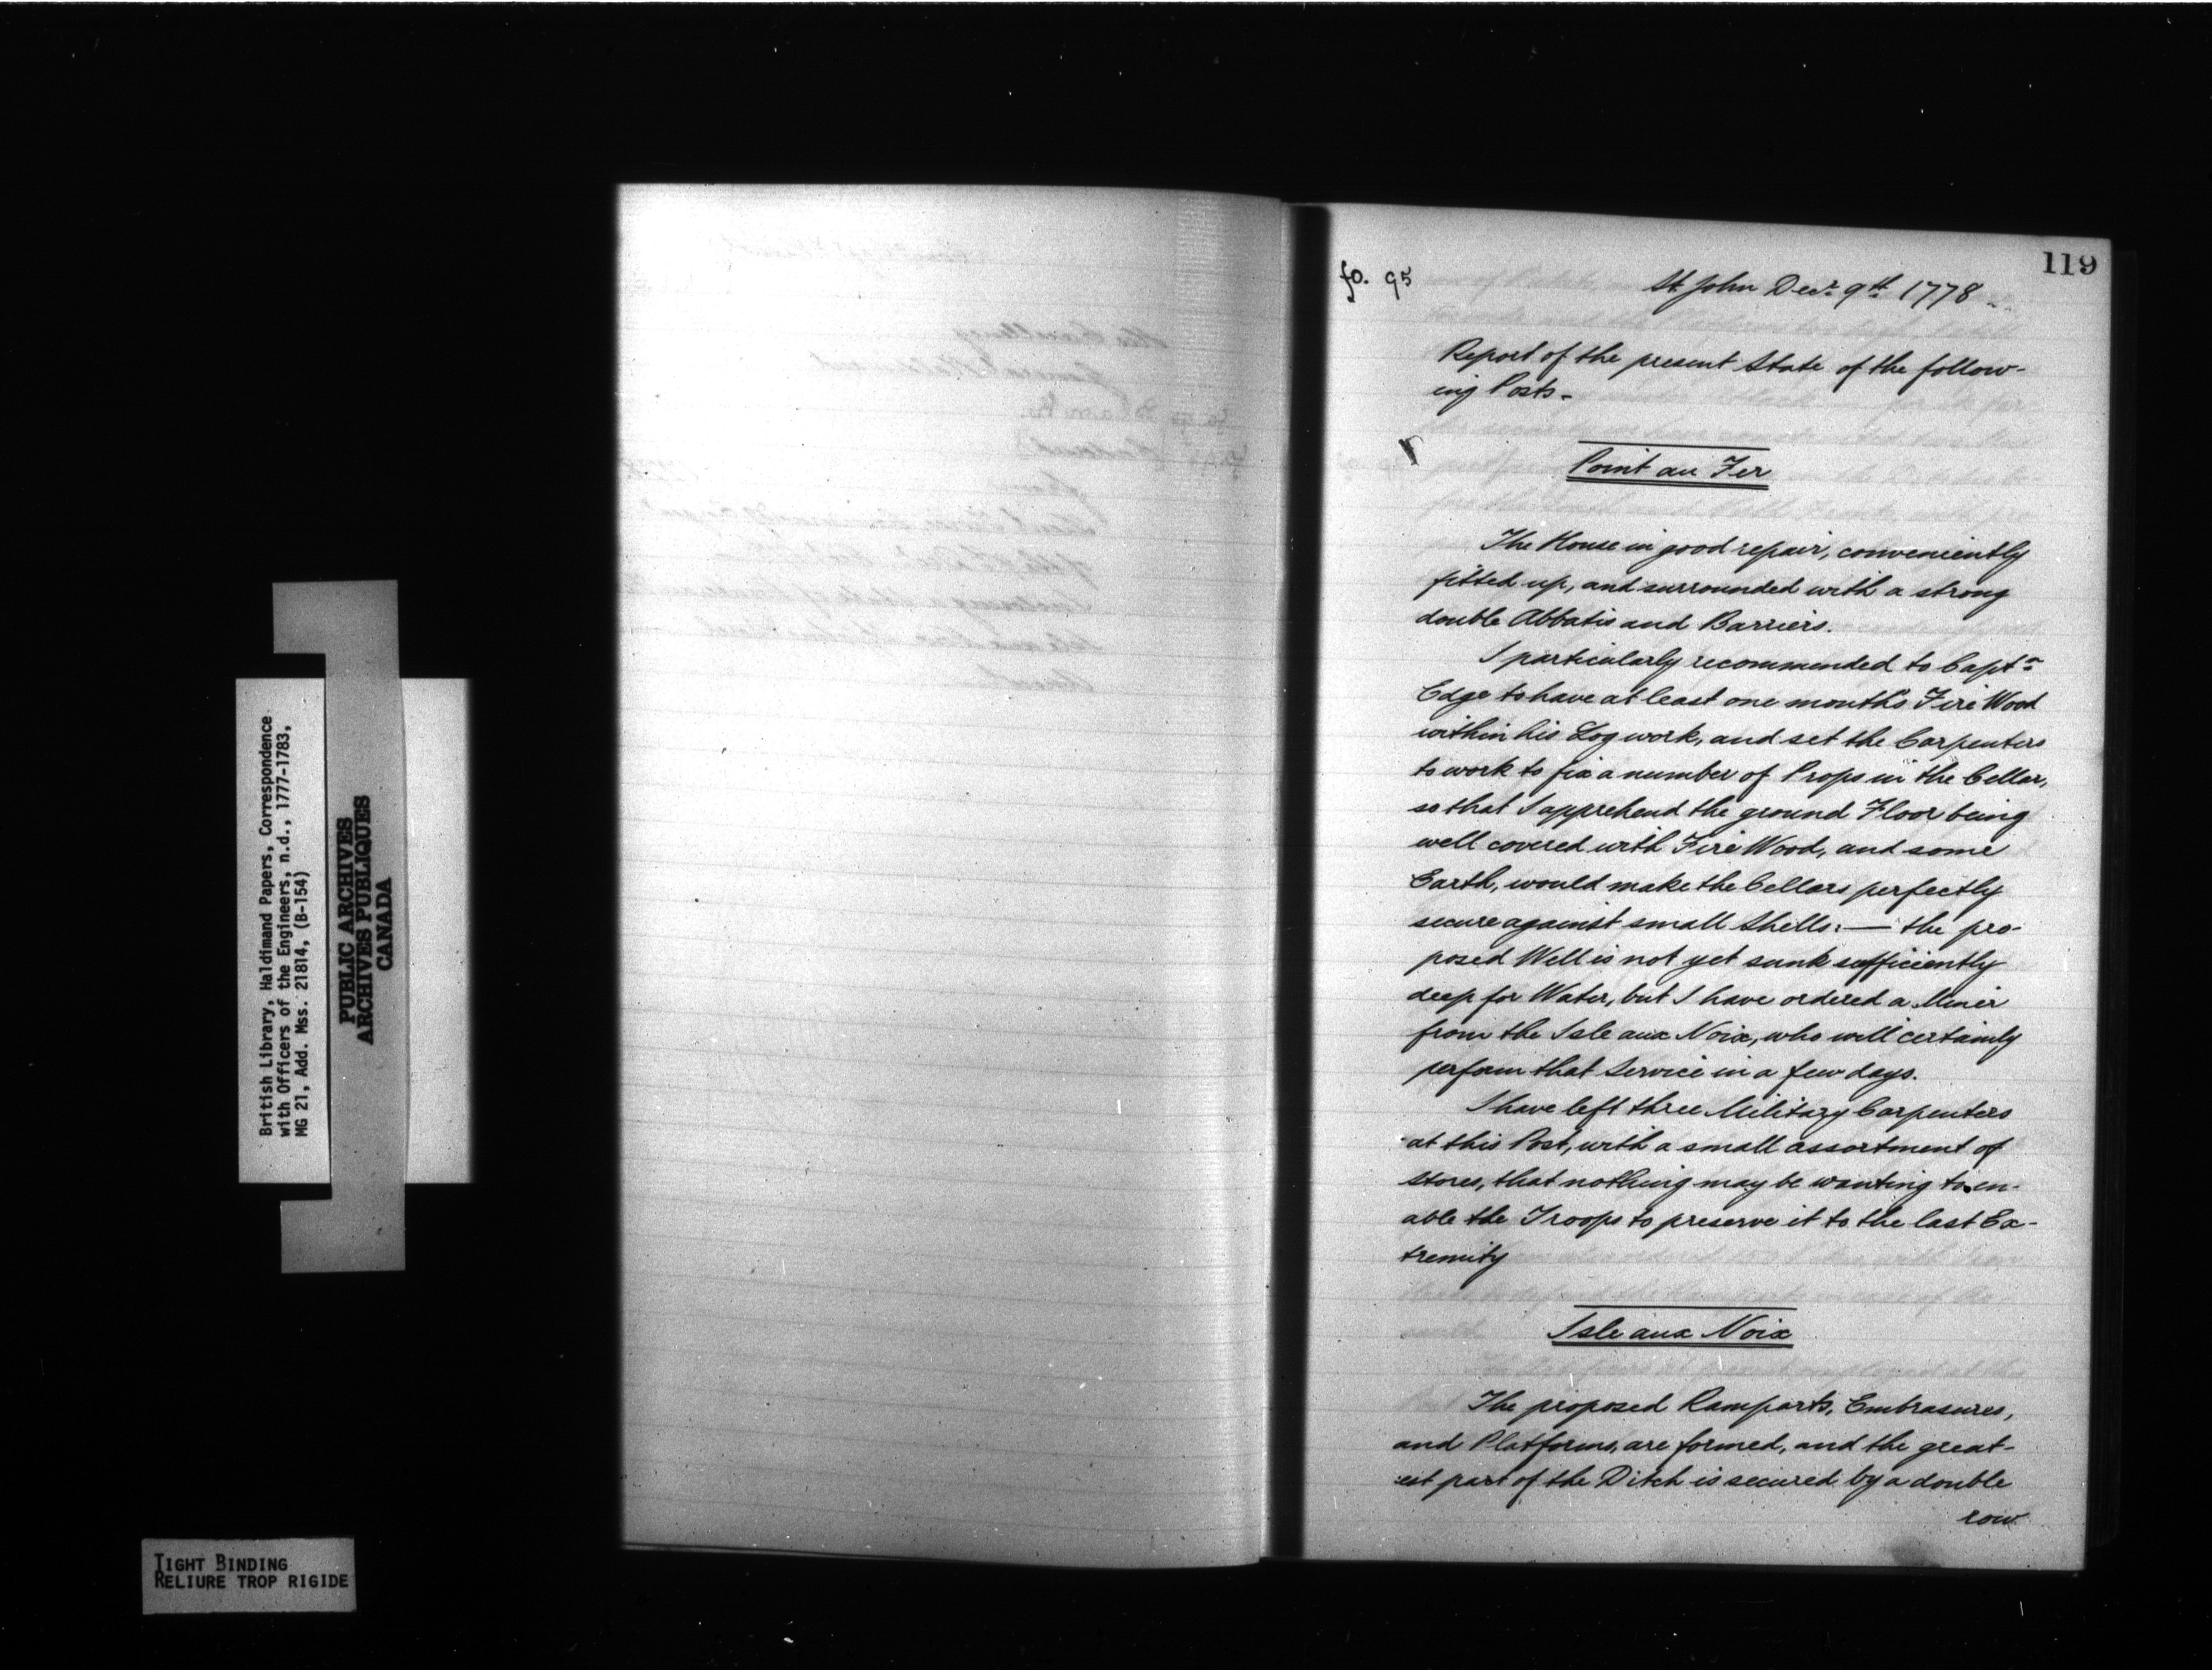 British Library, Haldimand Papers, Correspondence
with Officers of the Engineers, n.d., 1777-1783,
MG 21, Add. Mss. 21814, (B-154)
PUBLIC ARCHIVES
ARCHIVES PUBLIQUES
CANADA
TIGHT BINDING
RELIURE TROP RIGIDE
119
fo. 95
St John Decr. 9th. 1778
Report of the present State of the follow-
ing Posts.
Point au Fer
The House in good repair, conveniently
fitted up, and surrounded with a strong
double Abbatis and Barriers.
I particularly recommended to Captn.
Edge to have at least one month's Fire Wood
within his Log work, and set the Carpenters
to work to fix a number of Props in the Cellar,
so that I apprehend the ground Floor being
well covered with Fire Wood, and some
Earth, would make the Cellars perfectly
secure against small Shells: — the pro-
posed Well is not yet sunk sufficiently
deep for Water, but I have ordered a Miner
from the Isle aux Noix, who will certainly
perform that Service in a few days.
I have left three Military Carpenters
at this Post, with a small assortment of
stores, that nothing may be wanting to en-
able the Troops to preserve it to the last Ex-
tremity
Isle aux Noix
The proposed Ramparts, Embrasures,
and Platforms, are formed, and the great-
est part of the Ditch is secured by a double
row